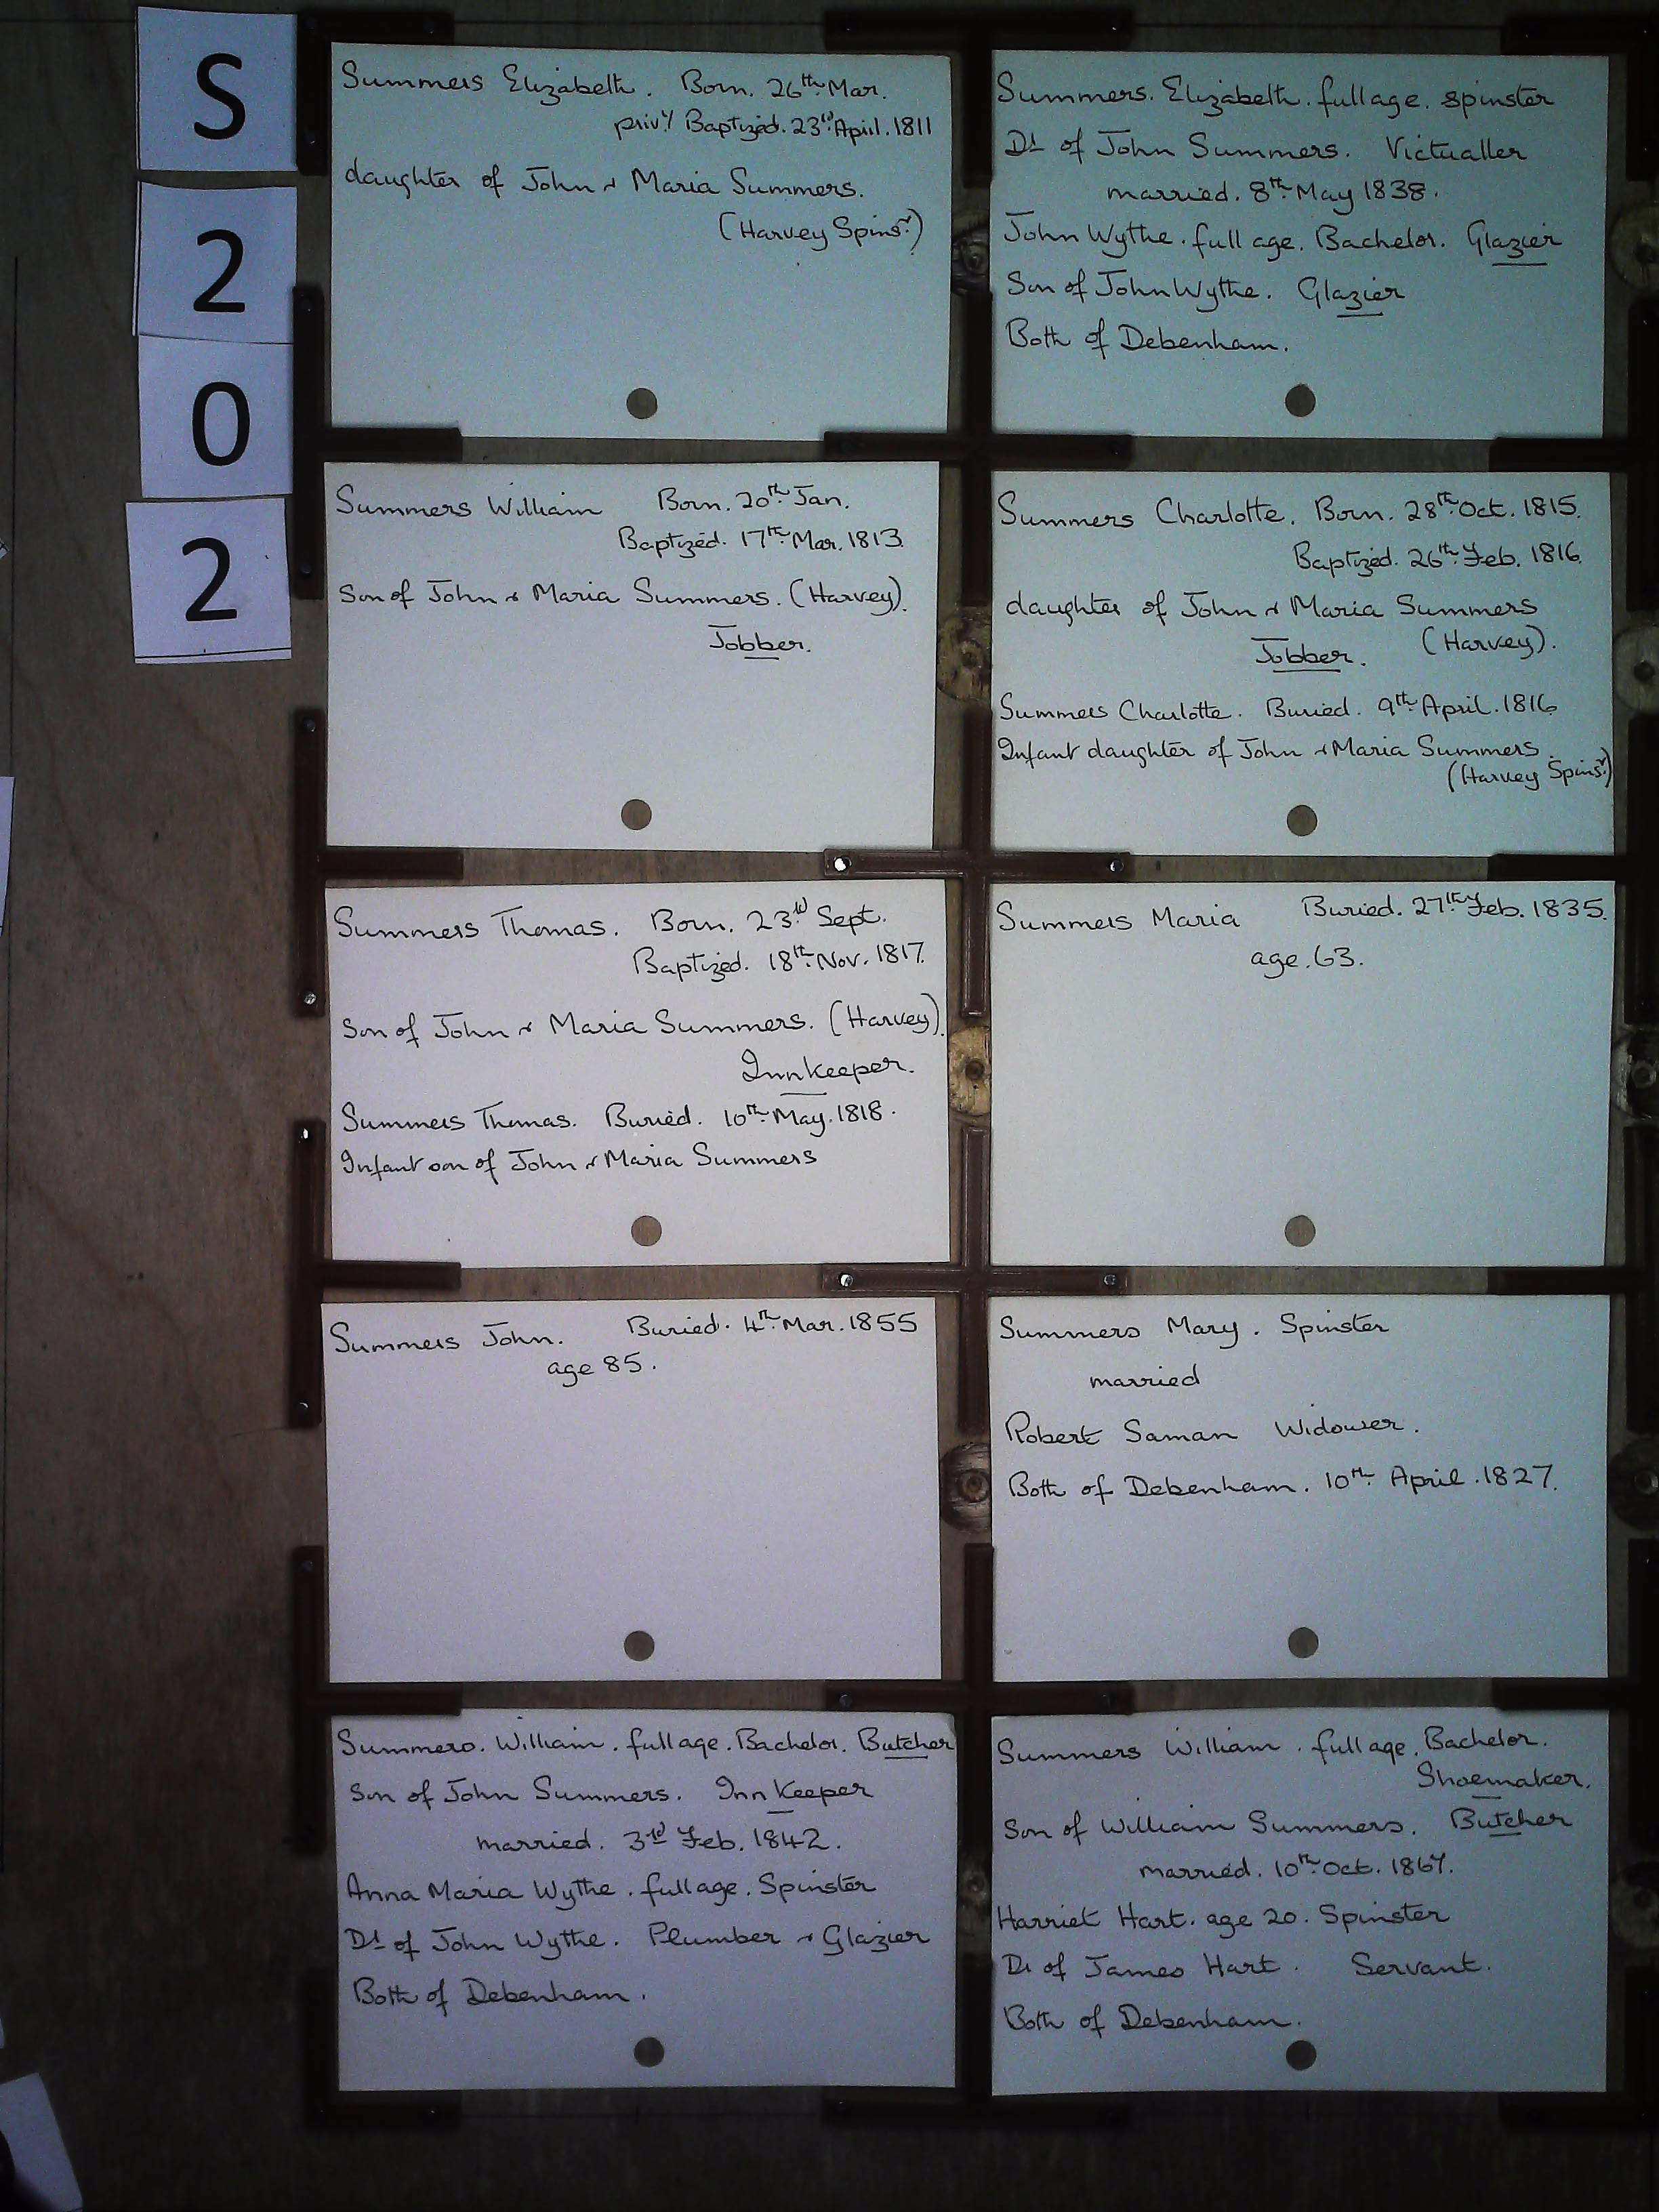 S
2
0
2
Summers Elizabeth. Born. 26th Mar.
privy Baptized. 23rd April. 1811
daughter of John & Maria Summers.
(Harvey Spinsr)
Summers. Elizabeth. full age. spinster
Dt of John Summers. Victualler
married. 8th May 1838.
John Wythe. full age. Bachelor. Glazier
Son of John Wythe. Glazier
Both of Debenham.
Summers William Born. 20th Jan.
Baptized. 17th Mar. 1813.
Son of John & Maria Summers. (Harvey).
Jobber.
Summers Charlotte. Born. 28th Oct. 1815.
Baptized. 26th Feb. 1816.
daughter of John & Maria Summers
(Harvey).
Jobber.
Summers Charlotte. Buried. 9th April. 1816.
Infant daughter of John & Maria Summers.
(Harvey Spinsr)
Summers Thomas. Born. 23rd Sept.
Baptized. 18th Nov. 1817.
Son of John & Maria Summers. (Harvey).
Innkeeper.
Summers Thomas. Buried. 10th May. 1818.
Infant son of John & Maria Summers
Summers Maria Buried. 27th Feb. 1835.
age. 63.
Summers John. Buried. 4th Mar. 1855
age 85.
Summers Mary. Spinster
married
Robert Saman Widower.
Both of Debenham. 10th April. 1827.
Summers. William. full age. Bachelor. Butcher
Son of John Summers. Inn Keeper
married. 3rd Feb. 1842.
Anna Maria Wythe. full age. Spinster
Dt of John Wythe. Plumber & Glazier
Both of Debenham.
Summers William. full age. Bachelor.
Shoemaker.
Son of William Summers. Butcher
married. 10th Oct. 1867.
Harriet Hart. age 20. Spinster
Dt of James Hart. Servant.
Both of Debenham.